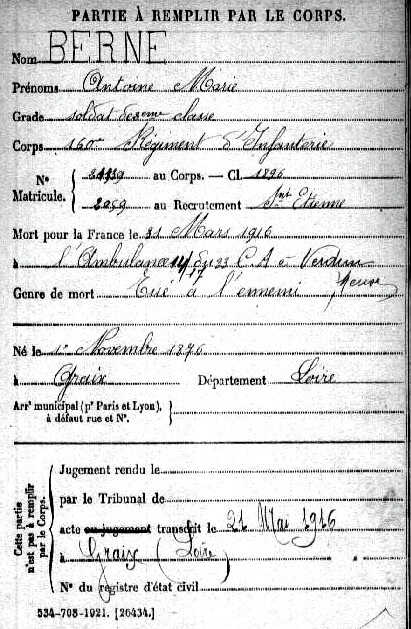 PARTIE À REMPLIR PAR LE CORPS.
Nom BERNE
Prénoms Antoine Marie
Grade soldat de 2eme classe
Corps 160e Régiment d'Infanterie
N° Matricule. { au Corps. — Cl. 1896
2059 au Recrutement Snt Etienne
Mort pour la France le 31 Mars 1916
à l'Ambulance du 23 C A à Verdun
Meuse
Genre de mort Tué à l'ennemi
Né le 1er Novembre 1876
à Graix Département Loire
Arrt municipal (pr Paris et Lyon), à défaut rue et N°. {
Cette partie n'est pas à remplir par le Corps.
Jugement rendu le
par le Tribunal de
acte ou jugement transcrit le 21 Mai 1916
à Graix (Loire)
N° du registre d'état civil
534-708-1921. [26434.]